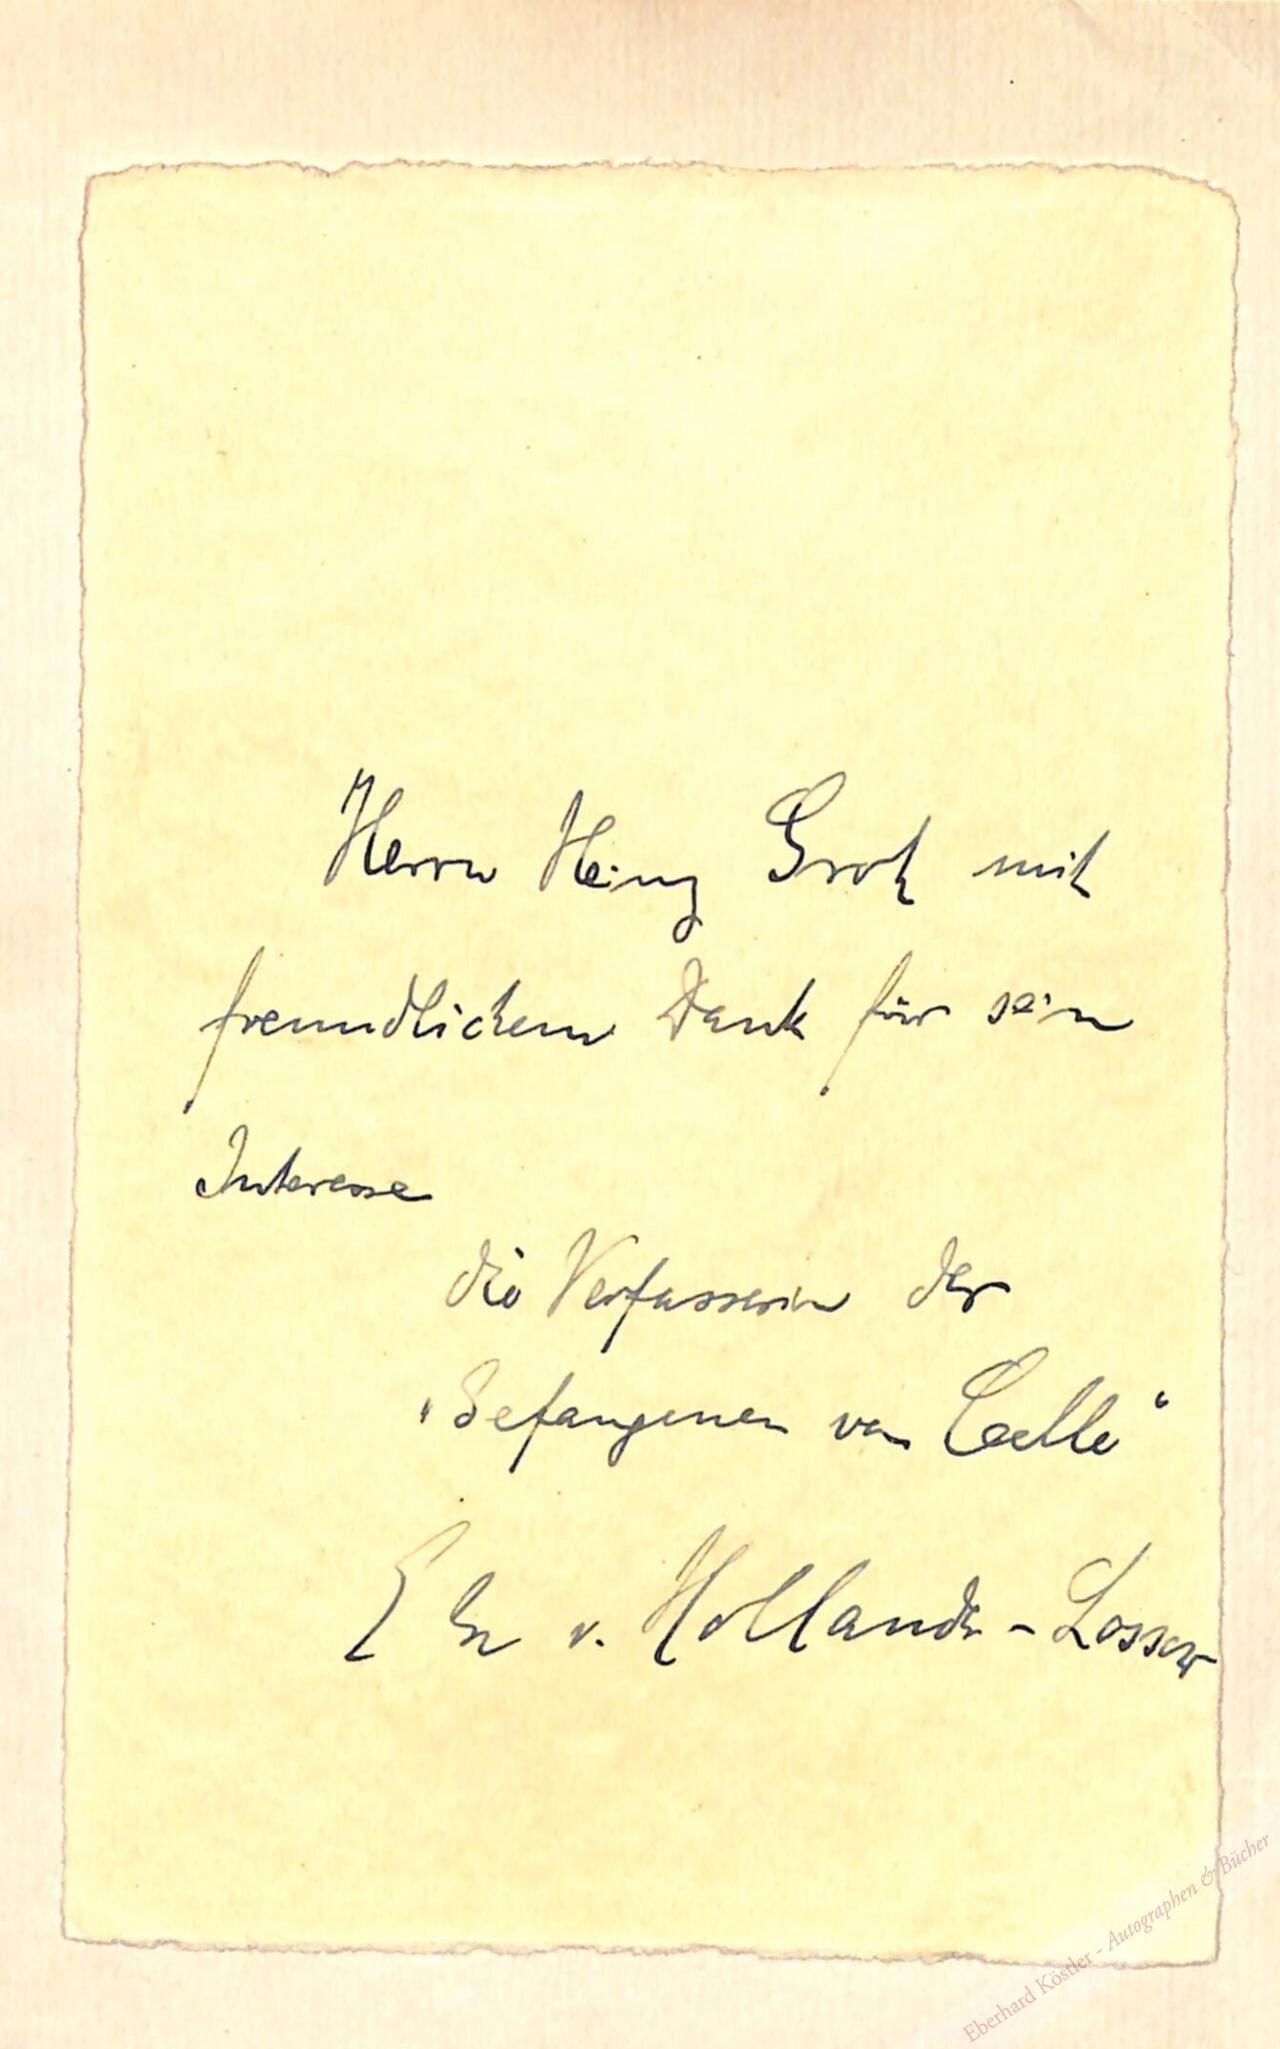 Herrn Heinz Grot mit
freundlichem Dank für sein
Interesse
die Verfasserin der
„Gefangenen von Celle“
Else v. Hollander-Lossow
Eberhard Köstler - Autographen & Bücher